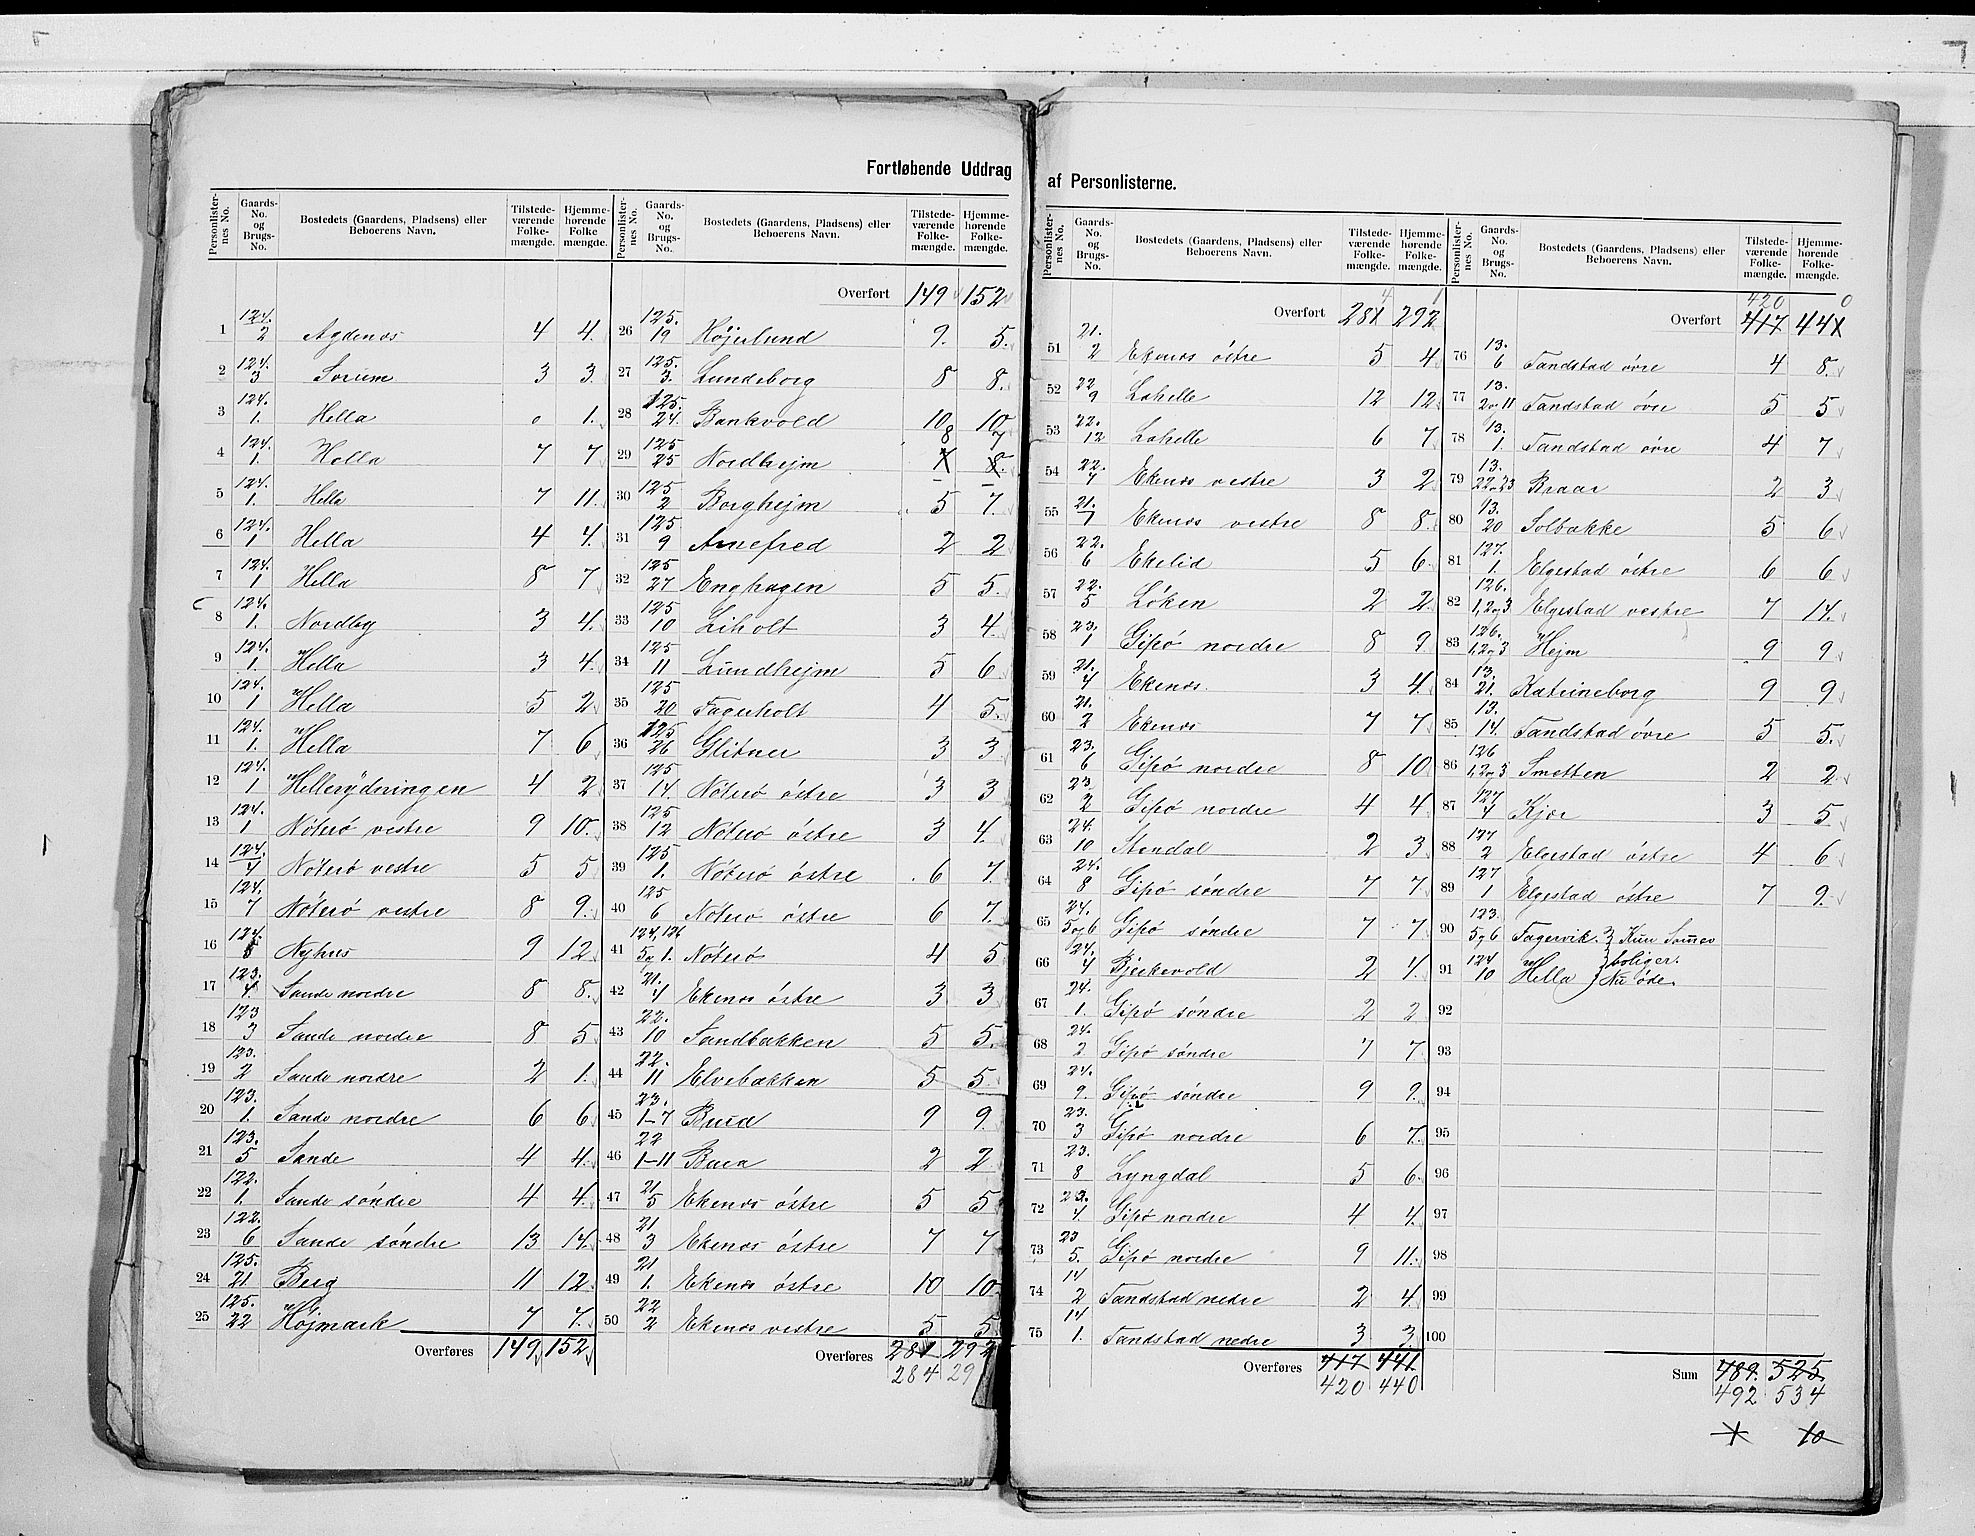 Fortløbende Uddrag af Personlisterne.
Personlisternes No. | Gaards-No. og Brugs-No. | Bostedets (Gaardens, Pladsens) eller Beboerens Navn. | Tilstedeværende Folkemængde. | Hjemmehørende Folkemængde.
1 124. 2 Agdenæs 4 4.
2 124. 3 Sorum 3 3.
3 124. 1. Hella 0 1.
4 124. 1. Hella 7 7
5 124. 1. Hella 7 11.
6 124. 1 Hella 4 4.
7 124. 1 Hella 8 7
8 124. 1. Nordby 3 4.
9 124. 1. Hella 3 4.
10 124. 1 Hella 5 2
11 124. 1. Hella 7 6
12 124. 1 Hellerÿderingen 4 2
13 124. 1 Nöterö vestre 9 10.
14 124. 4 Nöterö vestre 5 5
15 124. 7 Nöterö vestre 8 9.
16 124. 8 Nyhus 9 12
17 123. 4. Sande nordre 8 8.
18 123 3 Sande nordre 8 5
19 123. 2 Sande nordre 2 1.
20 123. 1. Sande nordre 6 6
21 123. 5 Sande 4 4.
22 122. 1. Sande söndre 4 4.
23 122. 6 Sande söndre 13 14.
24 125. 21. Berg 11 12.
25 125. 22 Højmark 7 7.
Overføres 149 152
Personlisternes No. | Gaards-No. og Brugs-No. | Bostedets (Gaardens, Pladsens) eller Beboerens Navn. | Tilstedeværende Folkemængde. | Hjemmehørende Folkemængde.
Overført 149 152
26 125. 19 Höjerlund 9. 5.
27 125. 3. Lundeborg 8 8.
28 125. 24. Bankvold 10 10
8 7
29 125 25 Nordhejm 7 8.
30 125 2 Borghejm 5 7.
31 125 9 Arnefred 2 2
32 125 27 Enghagen 5 5.
33 125 10 Liholt 3 4.
34 125 11 Lundhejm 5 6
35 125 20 Fagerholt 4 5.
36 125 26 Glitner 3 3
37 125 14 Nöterö östre 3 3
38 125 12 Nöterö östre 3 4.
39 125 1. Nöterö östre 6 7.
40 125 6 Nöterö östre 6 7.
41 124, 126 5og 1. Nöterö 4 5
42 21. 4 Ekenæs östre 3 3
43 22. 10 Sandbakken 5 5.
44 22. 11 Elvebakken 5 5.
45 23. 1-7 Buid 9 9.
46 22 1-11 Buea 2 2
47 21 5 Ekenæs östre 5 5
48 21 3 Ekenæs östre 7 7
49 21 1. Ekenæs östre 10 10
50 22 2 Ekenæs vestre 5 5
Overføres 281 292
284 29
Personlisternes No. | Gaards-No. og Brugs-No. | Bostedets (Gaardens, Pladsens) eller Beboerens Navn. | Tilstedeværende Folkemængde. | Hjemmehørende Folkemængde.
4 1
Overført 281 292
51 21. 2 Ekenæs östre 5 4
52 22 9 Lahelle 12 12
53 22. 12 Lahelle 6 7
54 22. 7 Ekenæs vestre 3 2
55 21. 7 Ekenæs vestre 8 8.
56 22. 6 Ekelid 5 6.
57 22. 5 Löken 2 2
58 23. 1 Gipö nordre 8 9
59 21. 4 Ekenæs. 3 4.
60 21. 2 Ekenæs 7 7
61 23. 6 Gipö nordre 8 10
62 23. 2 Gipö nordre 4 4
63 24. 10 Stendal 2 3
64 24. 8 Gipö söndre 7 7
65 24. 5og6 Gipö söndre 7 7
66 24. 4 Bjerkevold 2 4.
67 24. 1. Gipö söndre 2 2
68 24. 2 Gipö söndre 7 7
69 24. 9. Gipö söndre 9 9.
70 23. 3 Gipö nordre 6 7.
71 23. 8 Lyngdal 5 6
72 23. 4. Gipö nordre 4 4.
73 23 5. Gipö nordre 9 11.
74 14 2 Tandstad nedre 2 4.
75 14 1. Tandstad nedre 3 3.
Overføres 417 441
420 440
Personlisternes No. | Gaards-No. og Brugs-No. | Bostedets (Gaardens, Pladsens) eller Beboerens Navn. | Tilstedeværende Folkemængde. | Hjemmehørende Folkemængde.
420 0
Overført 417 441
76 13. 6 Tandstad övre 4 8.
77 13. 2og11 Tandstad övre 5 5
78 13. 1. Tandstad övre 4 7
79 13. 22og23 Braar 2 3
80 13. 20 Solbakke 5 6
81 127. 1. Elgestad östre 6 6
82 126. 1,2og3 Elgestad vestre 7 14.
83 126. 1,2og3 Hejm 9 9
84 13. 21. Katrineborg 9 9
85 13. 14. Tandstad övre 5 5.
86 126 1,2og3 Smetten 2 2
87 127 4 Kjær 3 5
88 127 2 Elgestad östre 4 6
89 127 1 Elgestad östre 7 9.
90 123. 5og6 Fagervik. } Kun Sommer
91 124 10 Hella } boliger. Nu öde.
92
93
94
95
96
97
98
99
100
Sum 489. 525
492 534
1 10